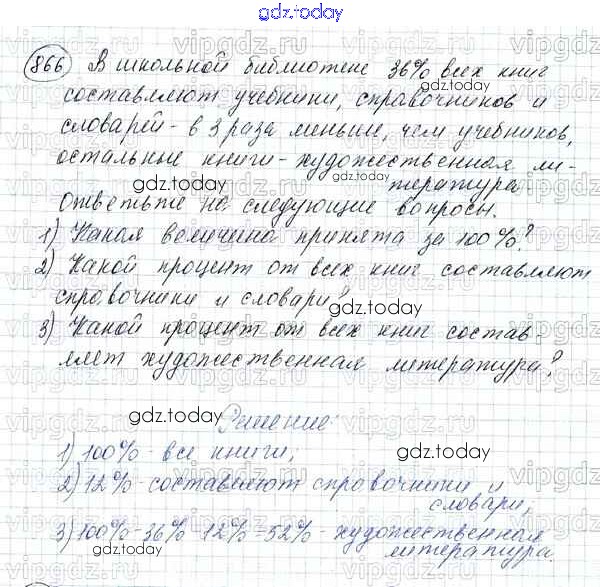 gdz.today
866 В школьной библиотеке 36% всех книг
составляют учебники, справочников и
словарей - в 3 раза меньше, чем учебников,
остальные книги - художественная ли-
тература.
Ответьте на следующие вопросы.
1) Какая величина принята за 100%?
2) Какой процент от всех книг составляют
справочники и словари?
3) Какой процент от всех книг состав-
ляет художественная литература?
Решение:
1) 100% - все книги;
2) 12% - составляют справочники и
словари;
3) 100% - 36% - 12% = 52% - художественная
литература.